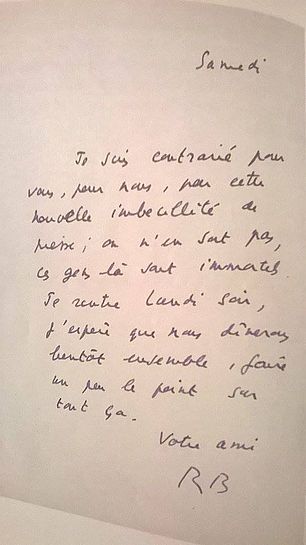 Samedi
Je suis contrarié pour
vous, pour nous, pour cette
nouvelle imbécillité de
presse ; on n'en sort pas,
ces gens là sont immortels.
Je rentre Lundi soir,
j'espère que nous dînerons
bientôt ensemble, faire
un peu le point sur
tout ça.
Votre ami
RB